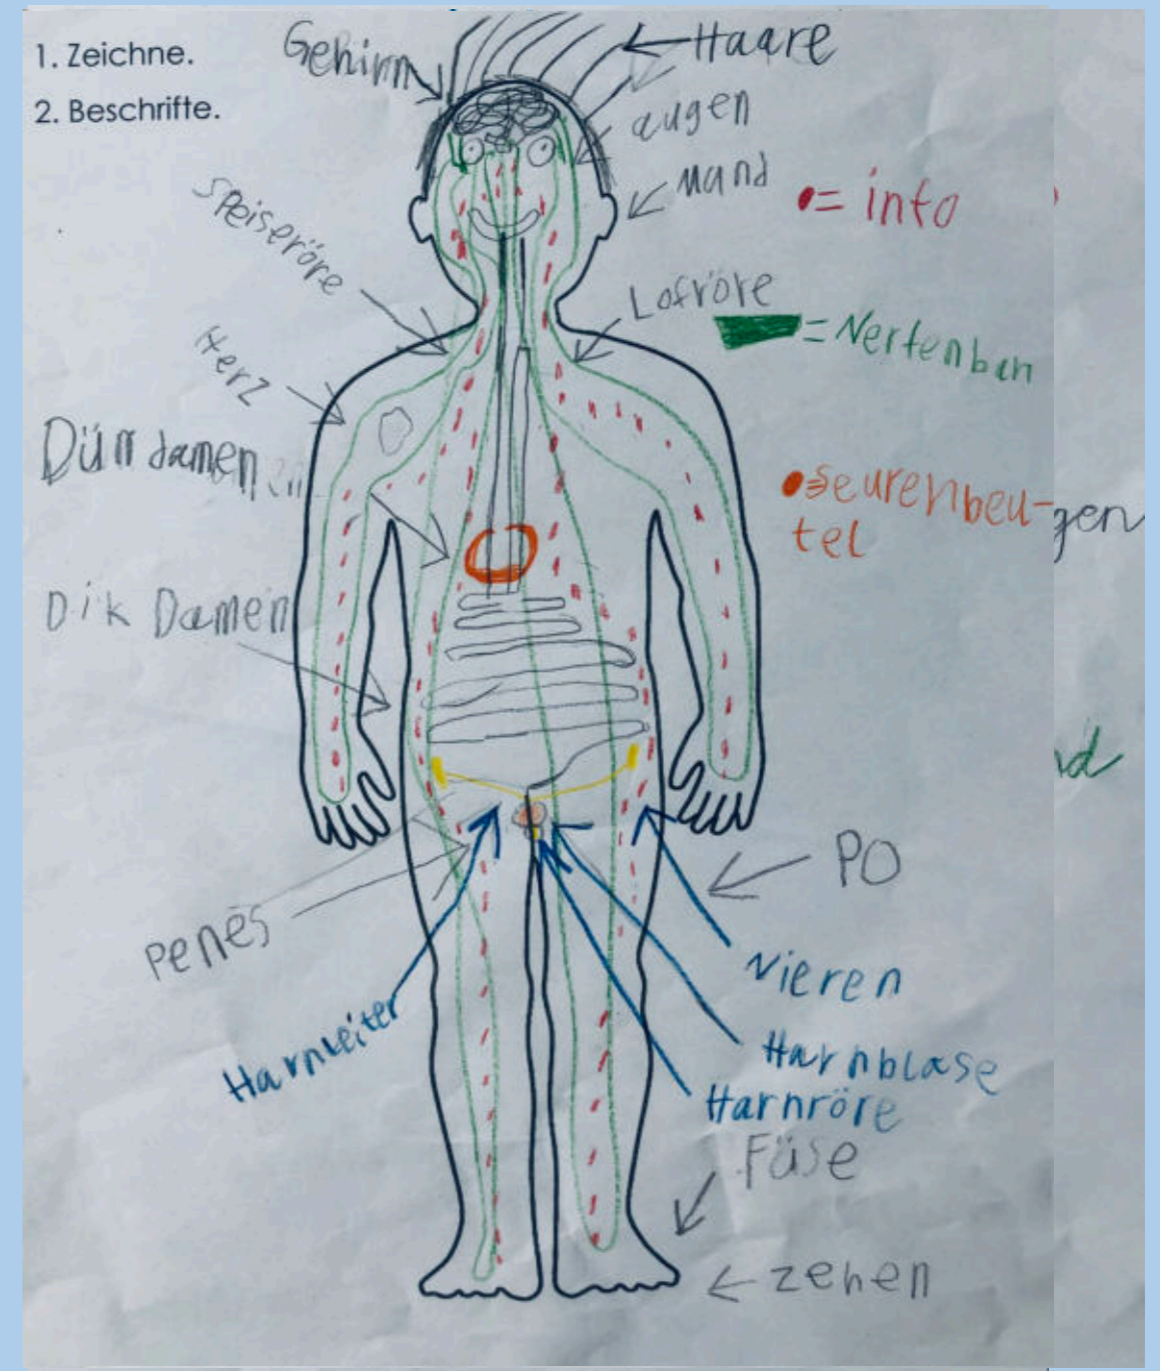 1. Zeichne.
2. Beschrifte.
Gehirn
Haare
augen
Mand
= info
Speiseröre
Lofröre
= Nerfenban
Herz
Dünn damen
seurenbeu-
tel
gen
Dik Damen
nd
PO
Penes
Nieren
Harnleiter
Harnblase
Harnröre
Füse
zehen